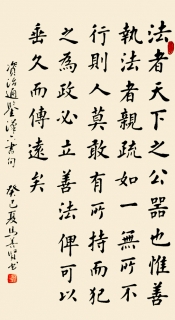 法者天下之公器也惟善
執法者親疏如一無所不
行則人莫敢有所恃而犯
之為政必立善法俾可以
垂久而傳遠矣
資治通鑒漢書句 癸巳夏馬書